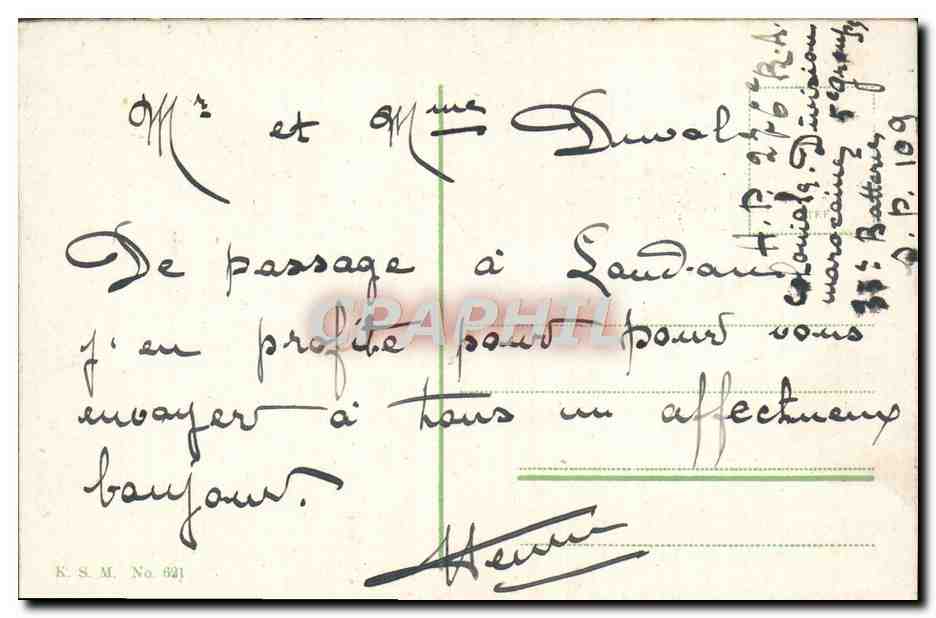 Mr et Mme Duval
De passage à Landau
j'en profite pour pour vous
envoyer à tous un affectueux
bonjour.
Henri
H.P. 276e R.A.
coloniale. Division
marocaine 5e groupe
33e Batterie
S.P. 109
K. S. M. No. 621
CPAPHIL